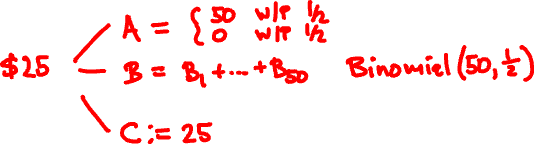 A = { 50 w/p 1/2
0 w/p 1/2
$25 B = B1 + ... + B50 Binomiel (50, 1/2)
C := 25